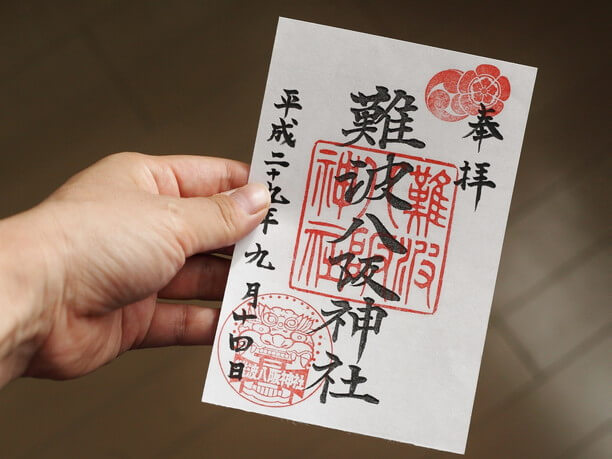 奉拝
難波八阪神社
難波八阪神社
平成二十九年九月十四日
難波八阪神社